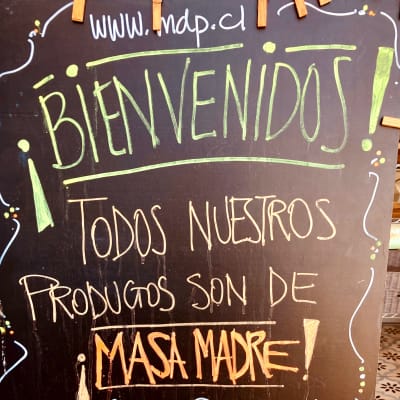 www.mdp.cl
¡BIENVENIDOS!
TODOS NUESTROS
PRODUCTOS SON DE
¡MASA MADRE!